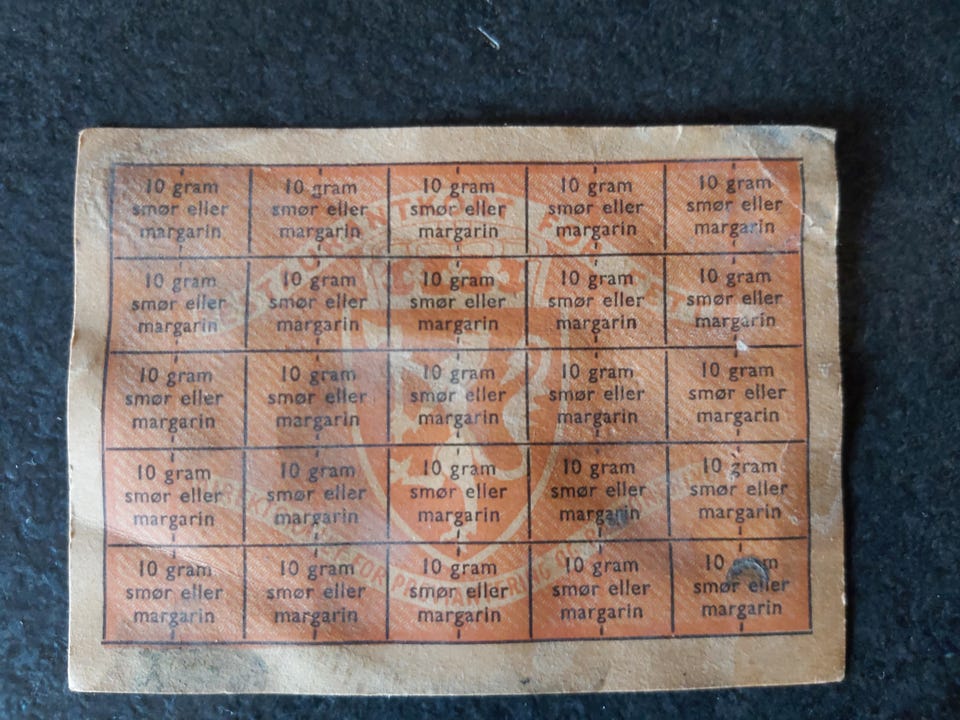 10 gram
smør eller
margarin
10 gram
smør eller
margarin
10 gram
smør eller
margarin
10 gram
smør eller
margarin
10 gram
smør eller
margarin
10 gram
smør eller
margarin
10 gram
smør eller
margarin
10 gram
smør eller
margarin
10 gram
smør eller
margarin
10 gram
smør eller
margarin
10 gram
smør eller
margarin
10 gram
smør eller
margarin
10 gram
smør eller
margarin
10 gram
smør eller
margarin
10 gram
smør eller
margarin
10 gram
smør eller
margarin
10 gram
smør eller
margarin
10 gram
smør eller
margarin
10 gram
smør eller
margarin
10 gram
smør eller
margarin
10 gram
smør eller
margarin
10 gram
smør eller
margarin
10 gram
smør eller
margarin
10 gram
smør eller
margarin
10 gram
smør eller
margarin
FOR PROVIANTERING OG